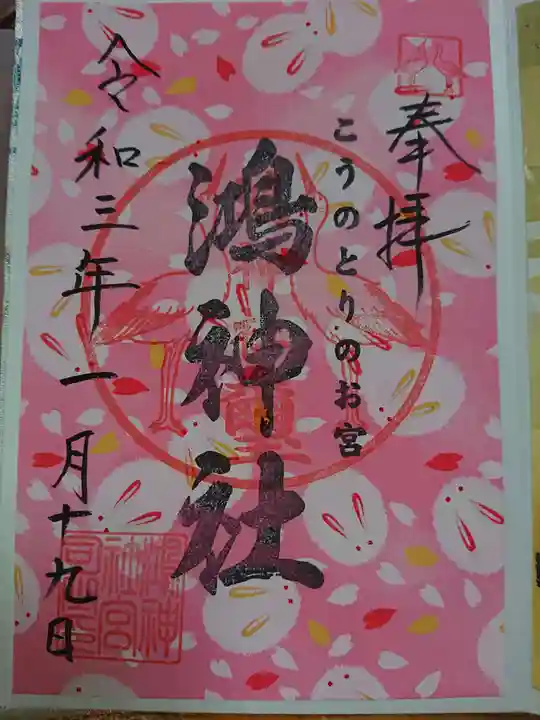 奉拝
こうのとりのお宮
鴻神社
令和三年一月十九日
鴻神
社宮
司印